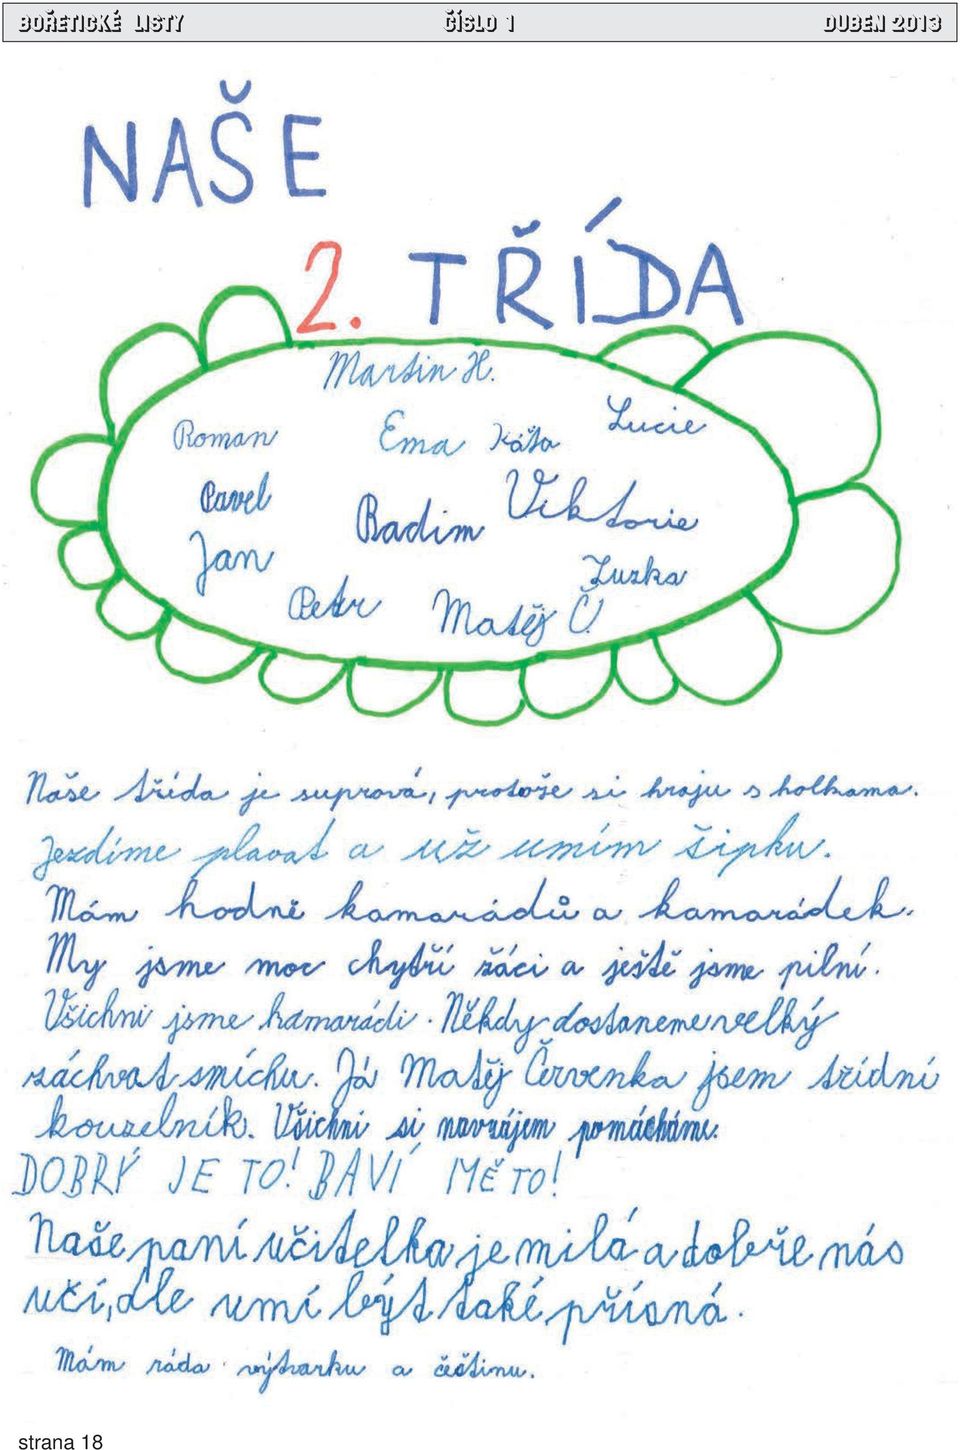 BOŘETICKÉ LISTY ČÍSLO 1 DUBEN 2013
NAŠE
2. TŘÍDA
Martin H.
Roman Ema Káťa Lucie
Pavel Radim Viktorie
Jan Zuzka
Petr Matěj Č.
Naše třída je suprová, protože si hraju s holkama.
Jezdíme plavat a už umím šipku.
Mám hodně kamarádů a kamarádek.
My jsme moc chytří žáci a ještě jsme pilní.
Všichni jsme kamarádi. Někdy dostaneme velký
záchvat smíchu. Já Matěj Červenka jsem třídní
kouzelník. Všichni si navzájem pomácháme.
DOBRÝ JE TO! BAVÍ MĚ TO!
Naše paní učitelka je milá a dobře nás
učí, ale umí být také přísná.
Mám ráda výtvarku a češtinu.
strana 18